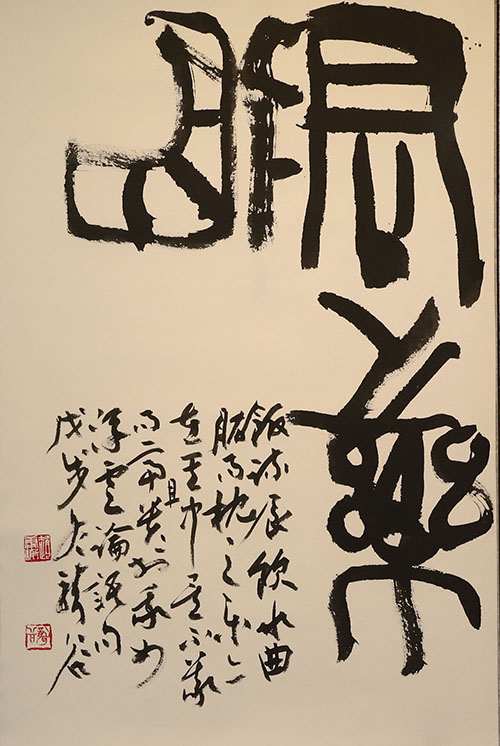 樂
飯疏食飲水曲
肱而枕之樂亦
在其中矣不義
而富且貴於我如
浮雲論語句
戊 冬 谷